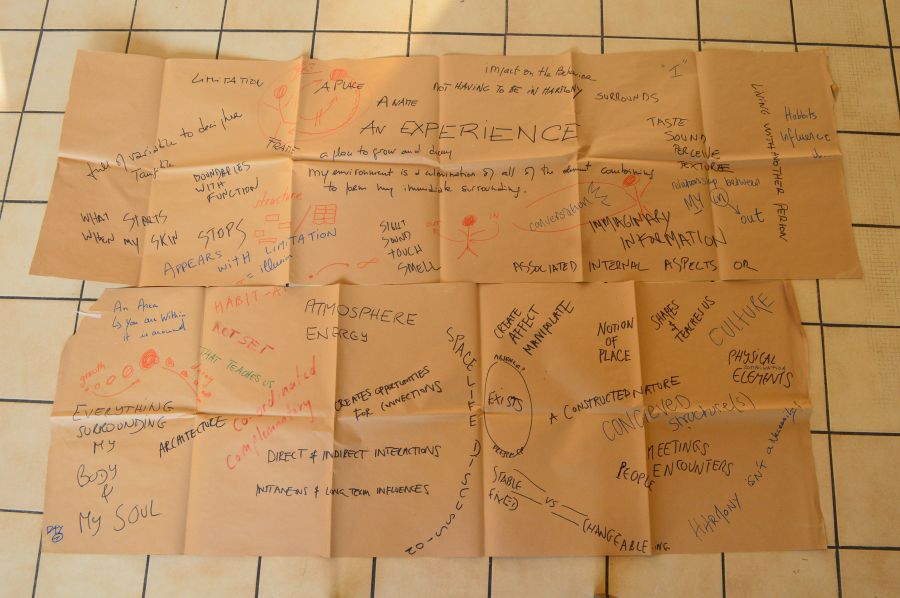 LIMITATION
A PLACE
impact on the Behaviour
NOT HAVING TO BE IN HARMONY
"I"
A NAME
AN EXPERIENCE
SURROUNDS
full of variable to decipher
Tangible
TRADE
a place to grow and decay
my environment is a culmination of all of the element combining
to form my immediate surrounding.
BOUNDARIES
WITH
FUNCTION
TASTE
SOUND
PERCEIVE
TEXTURE
relationship between
MY (in)
out
LIVING WITH ANOTHER PERSON
Habbits
influence
WHAT STARTS
WHEN MY SKIN STOPS
APPEARS WITH LIMITATION
= illusion
structure
SIGHT
SOUND
TOUCH
SMELL
OUT
IN
conversation
IMMAGINARY
INFORMATION
ASSOCIATED INTERNAL ASPECTS OR
An Area
you are within
it is around
growth
decay
EVERYTHING
SURROUNDING
MY
BODY
&
MY SOUL
HABIT-A
ACT SET
THAT TEACHES US
ARCHITECTURE
Co-ordinated
Complementary
ATMOSPHERE
ENERGY
CREATES OPPORTUNITIES
FOR CONNECTIONS
DIRECT & INDIRECT INTERACTIONS
INSTANEOUS & LONG TERM INFLUENCES
SPACE LIFE DISCUSSION
CREATE
AFFECT
MANIPULATE
ABSENCE?
EXISTS
PRESENCE
STABLE
FIX(E)
VS
CHANGEABLE
ING
NOTION
OF
PLACE
SHAPES
&
TEACHES US
CULTURE
PHYSICAL
COMBINATION
ELEMENTS
A CONSTRUCTED NATURE
CONCEIVED
structure(s)
MEETINGS
PEOPLE
ENCOUNTERS
HARMONY ISN'T a